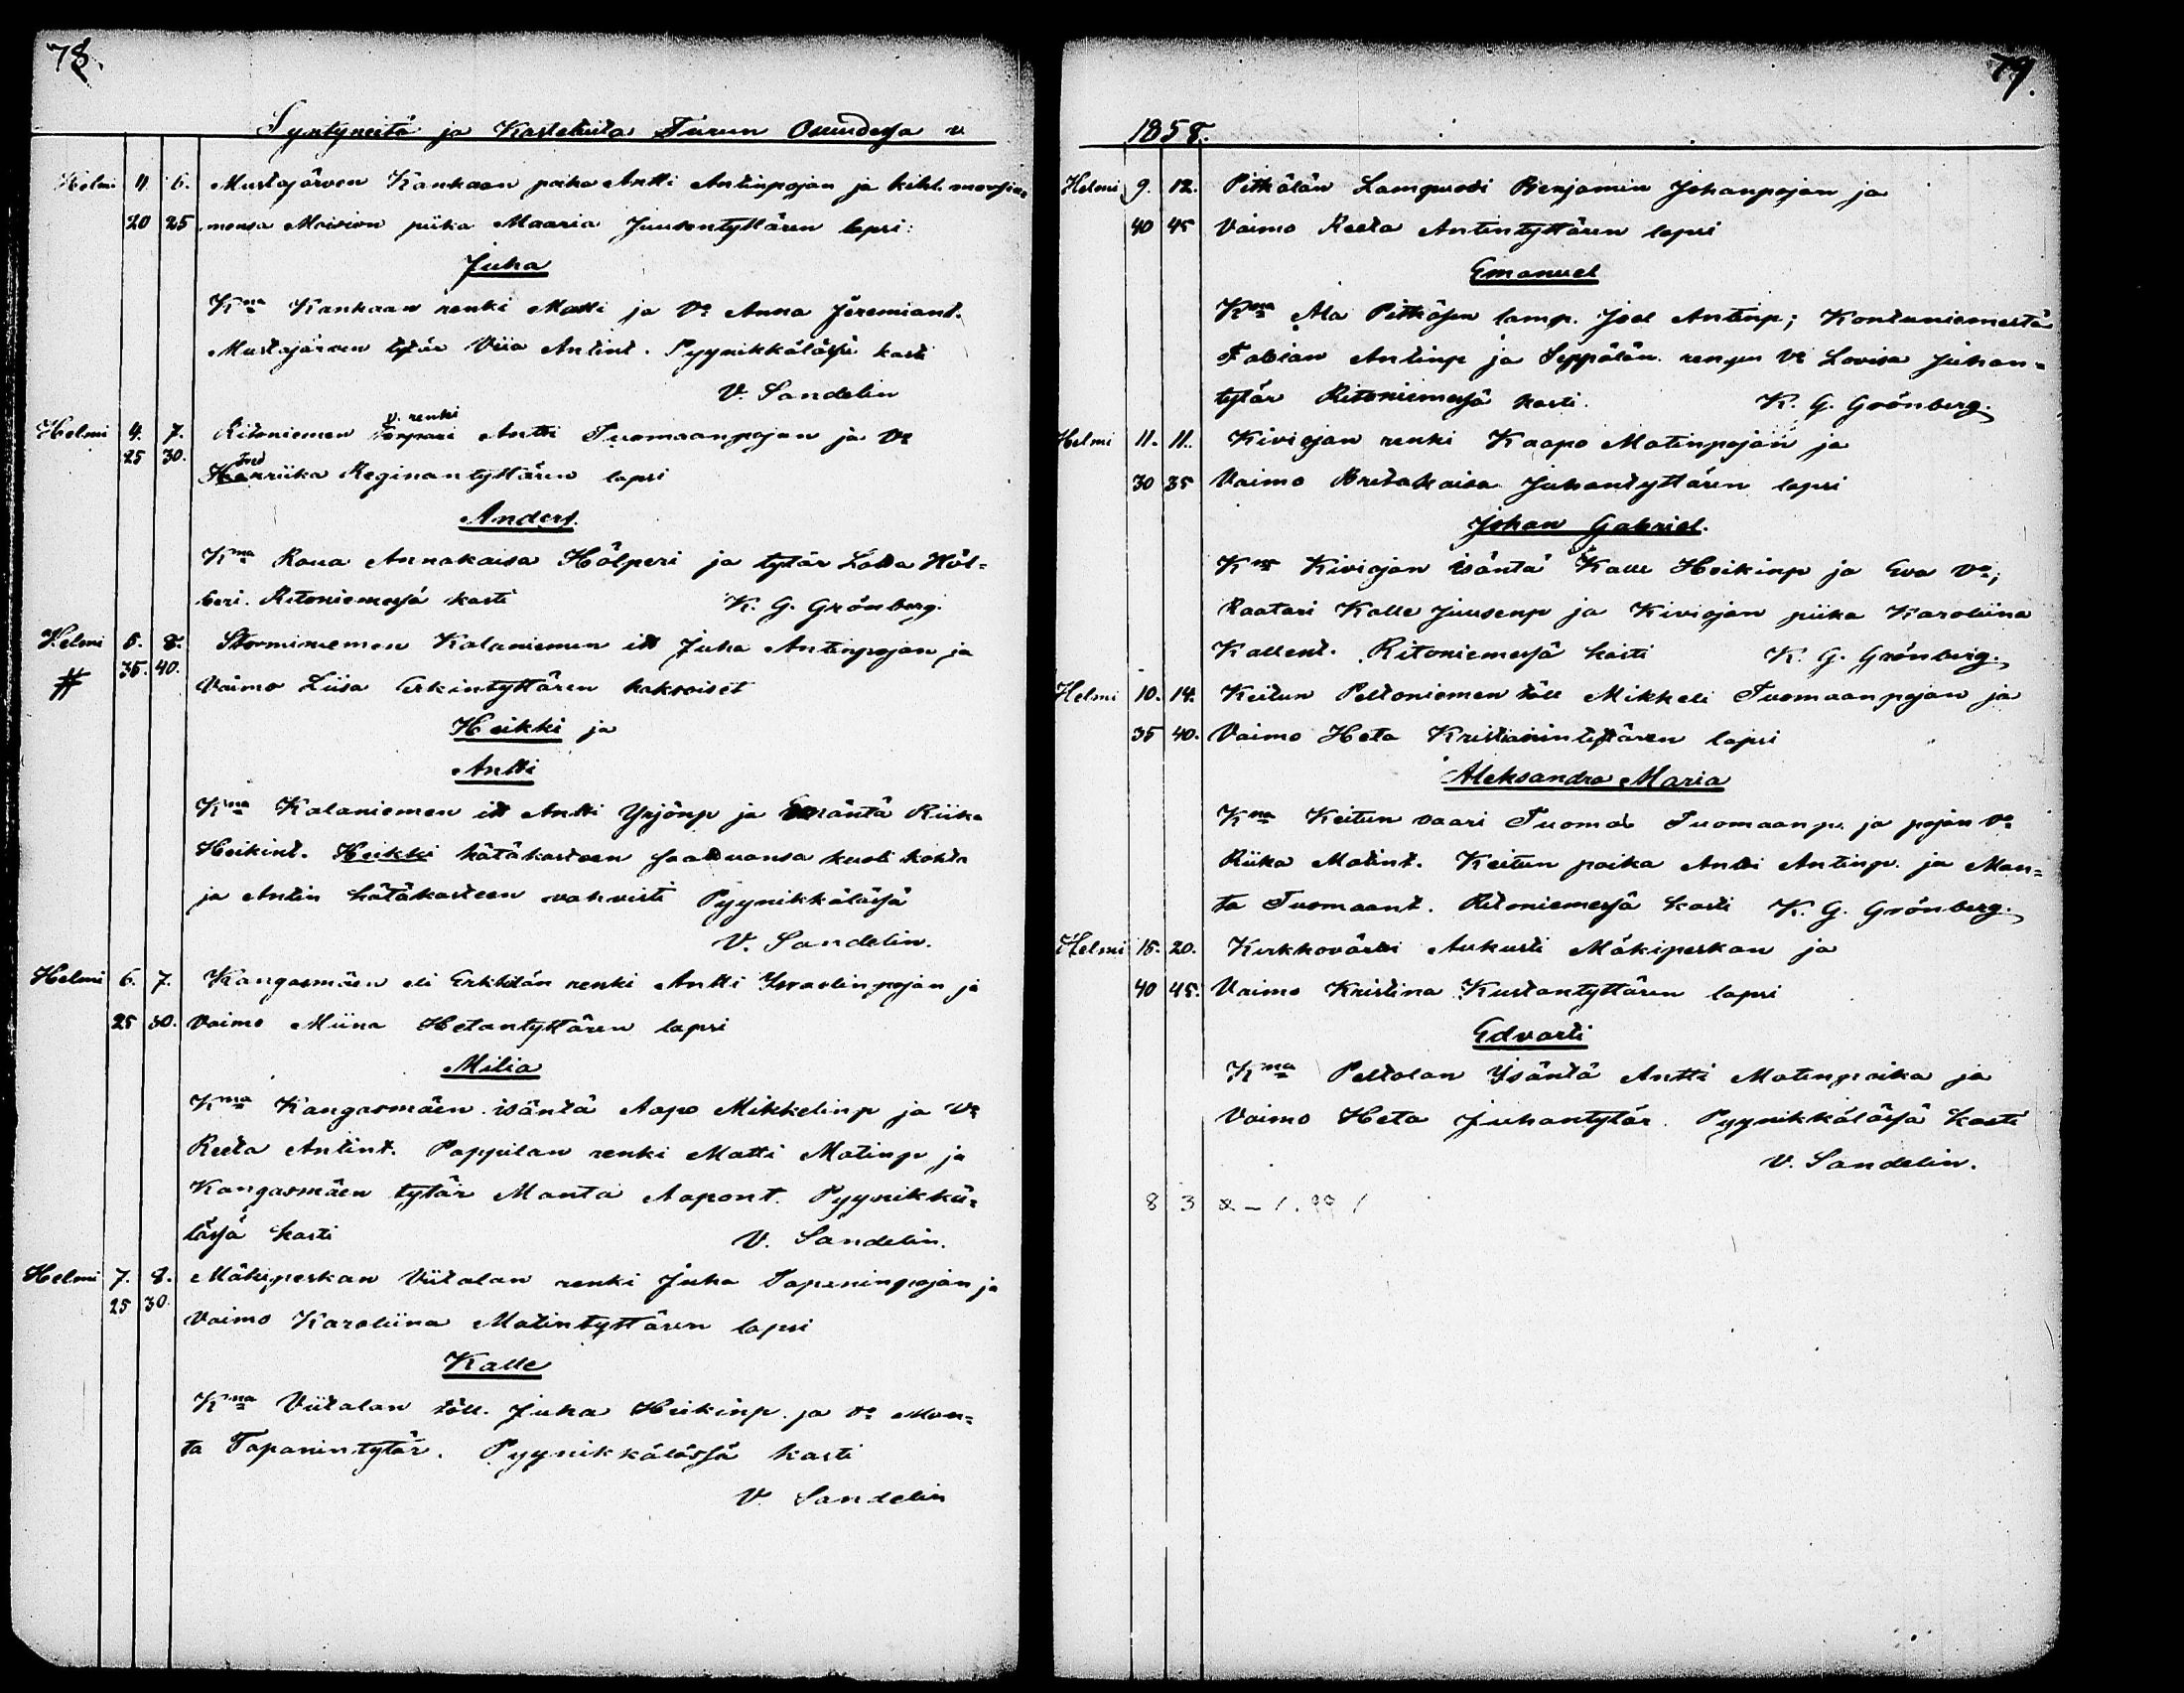 78.
Syntyneitä ja Kastetuita Turun Ouudessa v.
Helmi 11 6. Mustajärven Kankaan poika Antti Antinpojan ja kihl. morsia=
20 25 mensa Moision piika Maaria Juusontyttären lapsi:
Juha
Kma Kankaan renki Matti ja Vo Anna Jeremiant.
Mustajärven tytär Viia Antint. Pyynikkälässä kasti
V. Sandelin
v. renki
Helmi 4. 7. Ritoniemen Torpari Antti Tuomaanpojan ja Vo
25 30.
Fred
Henriika Reginantyttären lapsi
Anders.
Kma Roua Annakaisa Hölperi ja tytär Lotta Höl=
beri. Ritoniemessä kasti K. G. Grönberg.
Helmi 5. 8. Storminiemen Kalaniemen it Juha Antinpojan ja
# 35. 40.
Vaimo Liisa Erkintyttären kaksoiset
Heikki ja
Antti
Kma Kalaniemen it Antti Yrjönp ja Emäntä Riika
Heikint. Heikki hätäkasteen saatuansa kuoli kohta
ja Antin hätäkasteen vahvisti Pyynikkälässä
V. Sandelin.
Helmi 6. 7. Kangasmäen eli Erkkilän renki Antti Israelinpojan ja
25 30. Vaimo Miina Hetantyttären lapsi
Milia
Kma Kangasmäen isäntä Aapo Mikkelinp ja Vo
Reeta Antint. Pappilan renki Matti Matinp ja
Kangasmäen tytär Manta Aapont. Pyynikkä=
lässä kasti V. Sandelin.
Helmi 7. 8. Mäkipeskan Viitalan renki Juha Tapaninpojan ja
25 30.
Vaimo Karoliina Matintyttären lapsi
Kalle
Kma Viitalan töll. Juha Heikinp. ja Vo Man=
ta Tapanintytär. Pyynikkälässä kasti
V. Sandelin
79.
1858.
Helmi 9. 12. Pitkälän Lampuodi Benjamin Johanpojan ja
40 45 Vaimo Reeta Antintyttären lapsi
Emanuel
Kma Ala Pitkäsen lamp. Joel Antinp; Kontuniemestä
Fabian Antinp ja Seppälän rengin Vo Lovisa Juhan=
tytär Ritoniemessä kasti. K. G. Grönberg.
Helmi 11. 11. Kiviojan renki Kaapo Matinpojan ja
30 35 Vaimo Britakaisa Juhantyttären lapsi
Johan Gabriel.
Kma Kiviojan isäntä Kalle Heikinp ja Eva Vo;
Raatari Kalle Juusenp ja Kiviojan piika Karoliina
Kallent. Ritoniemessä kasti K. G. Grönberg.
Helmi 10. 14. Keitun Peltoniemen töll Mikkeli Tuomaanpojan ja
35 40. Vaimo Heta Kristianintyttären lapsi
Aleksandra Maria
Kma Keitun vaari Tuomas Tuomaanp. ja pojan Vo
Riika Matint. Keitun poika Antti Antinp. ja Man=
ta Tuomaant. Ritoniemessä kasti K. G. Grönberg.
Helmi 15. 20. Kirkkovärtti Aukusti Mäkipeskan ja
40 45. Vaimo Kristina Kustantyttären lapsi
Edvarti
Kma Peltolan Isäntä Antti Matinpoika ja
Vaimo Heta Juhantytär. Pyynikkälässä kasti
V. Sandelin.
8 3